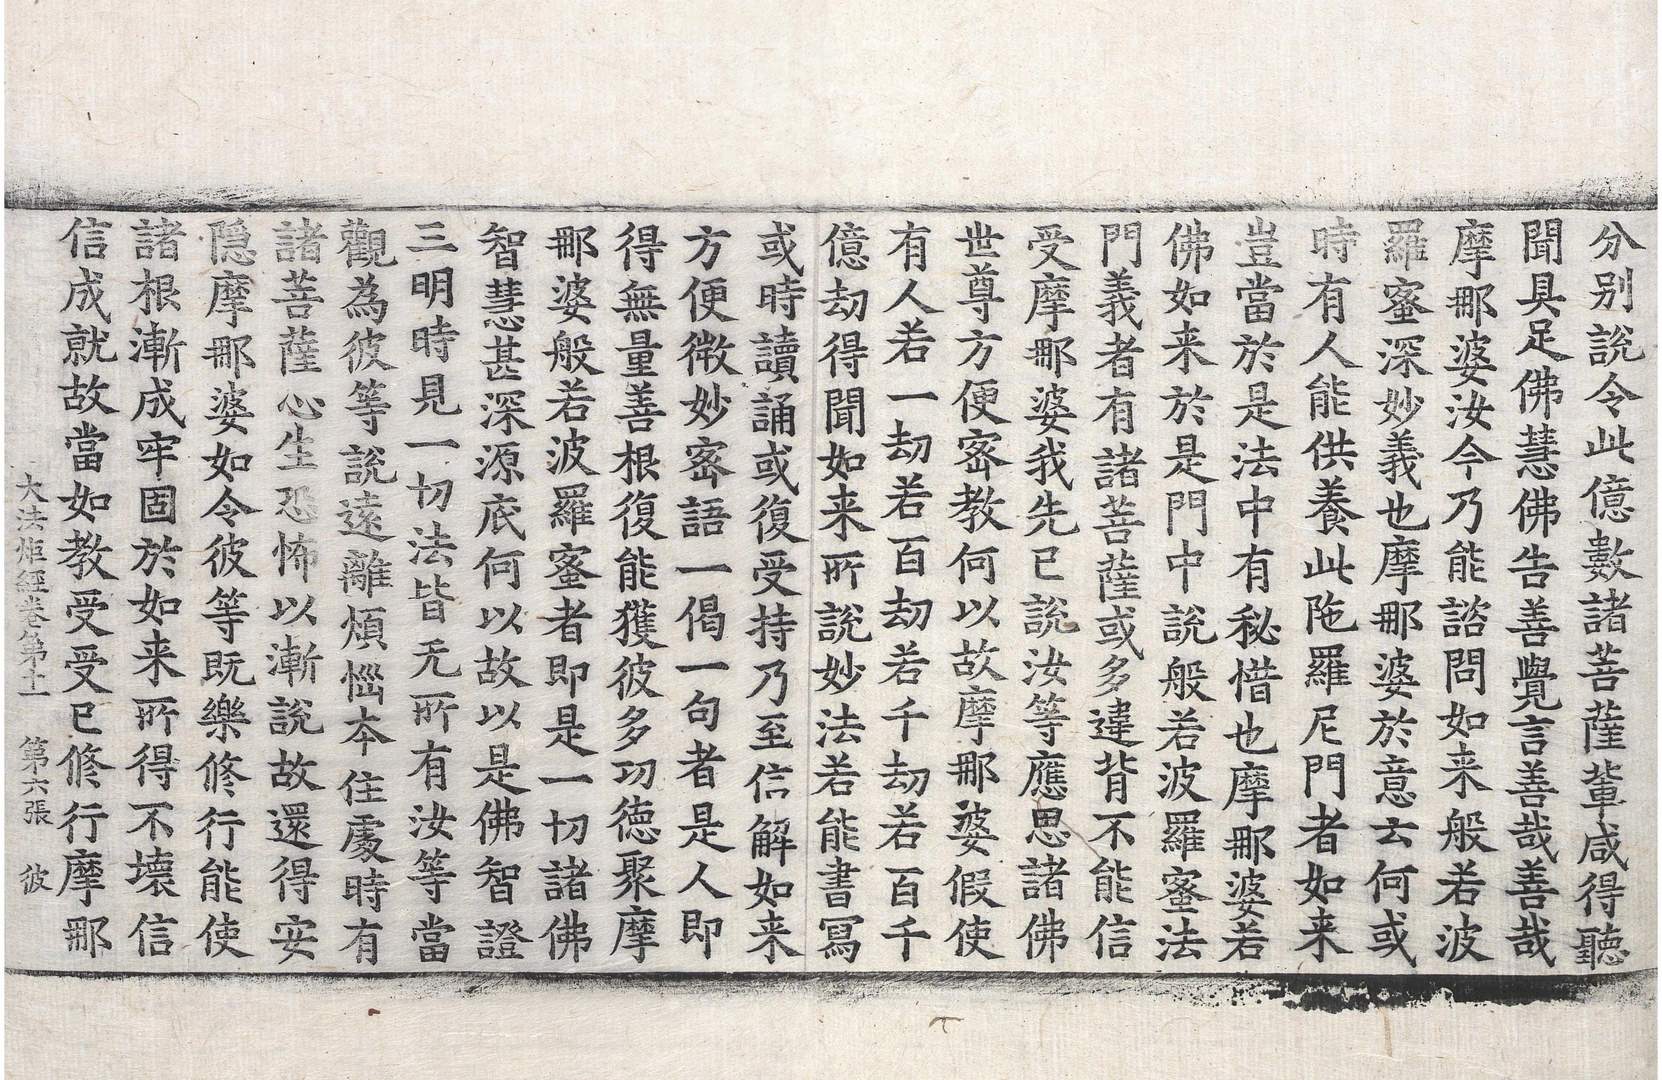 分別說令此億數諸菩薩輩咸得聽
聞具足佛慧佛告善覺言善哉善哉
摩那婆汝今乃能諮問如来般若波
羅蜜深妙義也摩那婆於意云何或
時有人能供養此陁羅尼門者如来
豈當於是法中有秘惜也摩那婆若
佛如来於是門中說般若波羅蜜法
門義者有諸菩薩或多違背不能信
受摩那婆我先已說汝等應思諸佛
世尊方便密教何以故摩那婆假使
有人若一劫若百劫若千劫若百千
億劫得聞如来所說妙法若能書寫
或時讀誦或復受持乃至信解如来
方便微妙密語一偈一句者是人即
得無量善根復能獲彼多功德聚摩
那婆般若波羅蜜者即是一切諸佛
智慧甚深源底何以故以是佛智證
三明時見一切法皆无所有汝等當
觀為彼等說遠離煩惱本住處時有
諸菩薩心生恐怖以漸說故還得安
隱摩那婆如令彼等既樂修行能使
諸根漸成牢固於如来所得不壞信
信成就故當如教受受已修行摩那
大法炬經卷第十一 第六張 彼